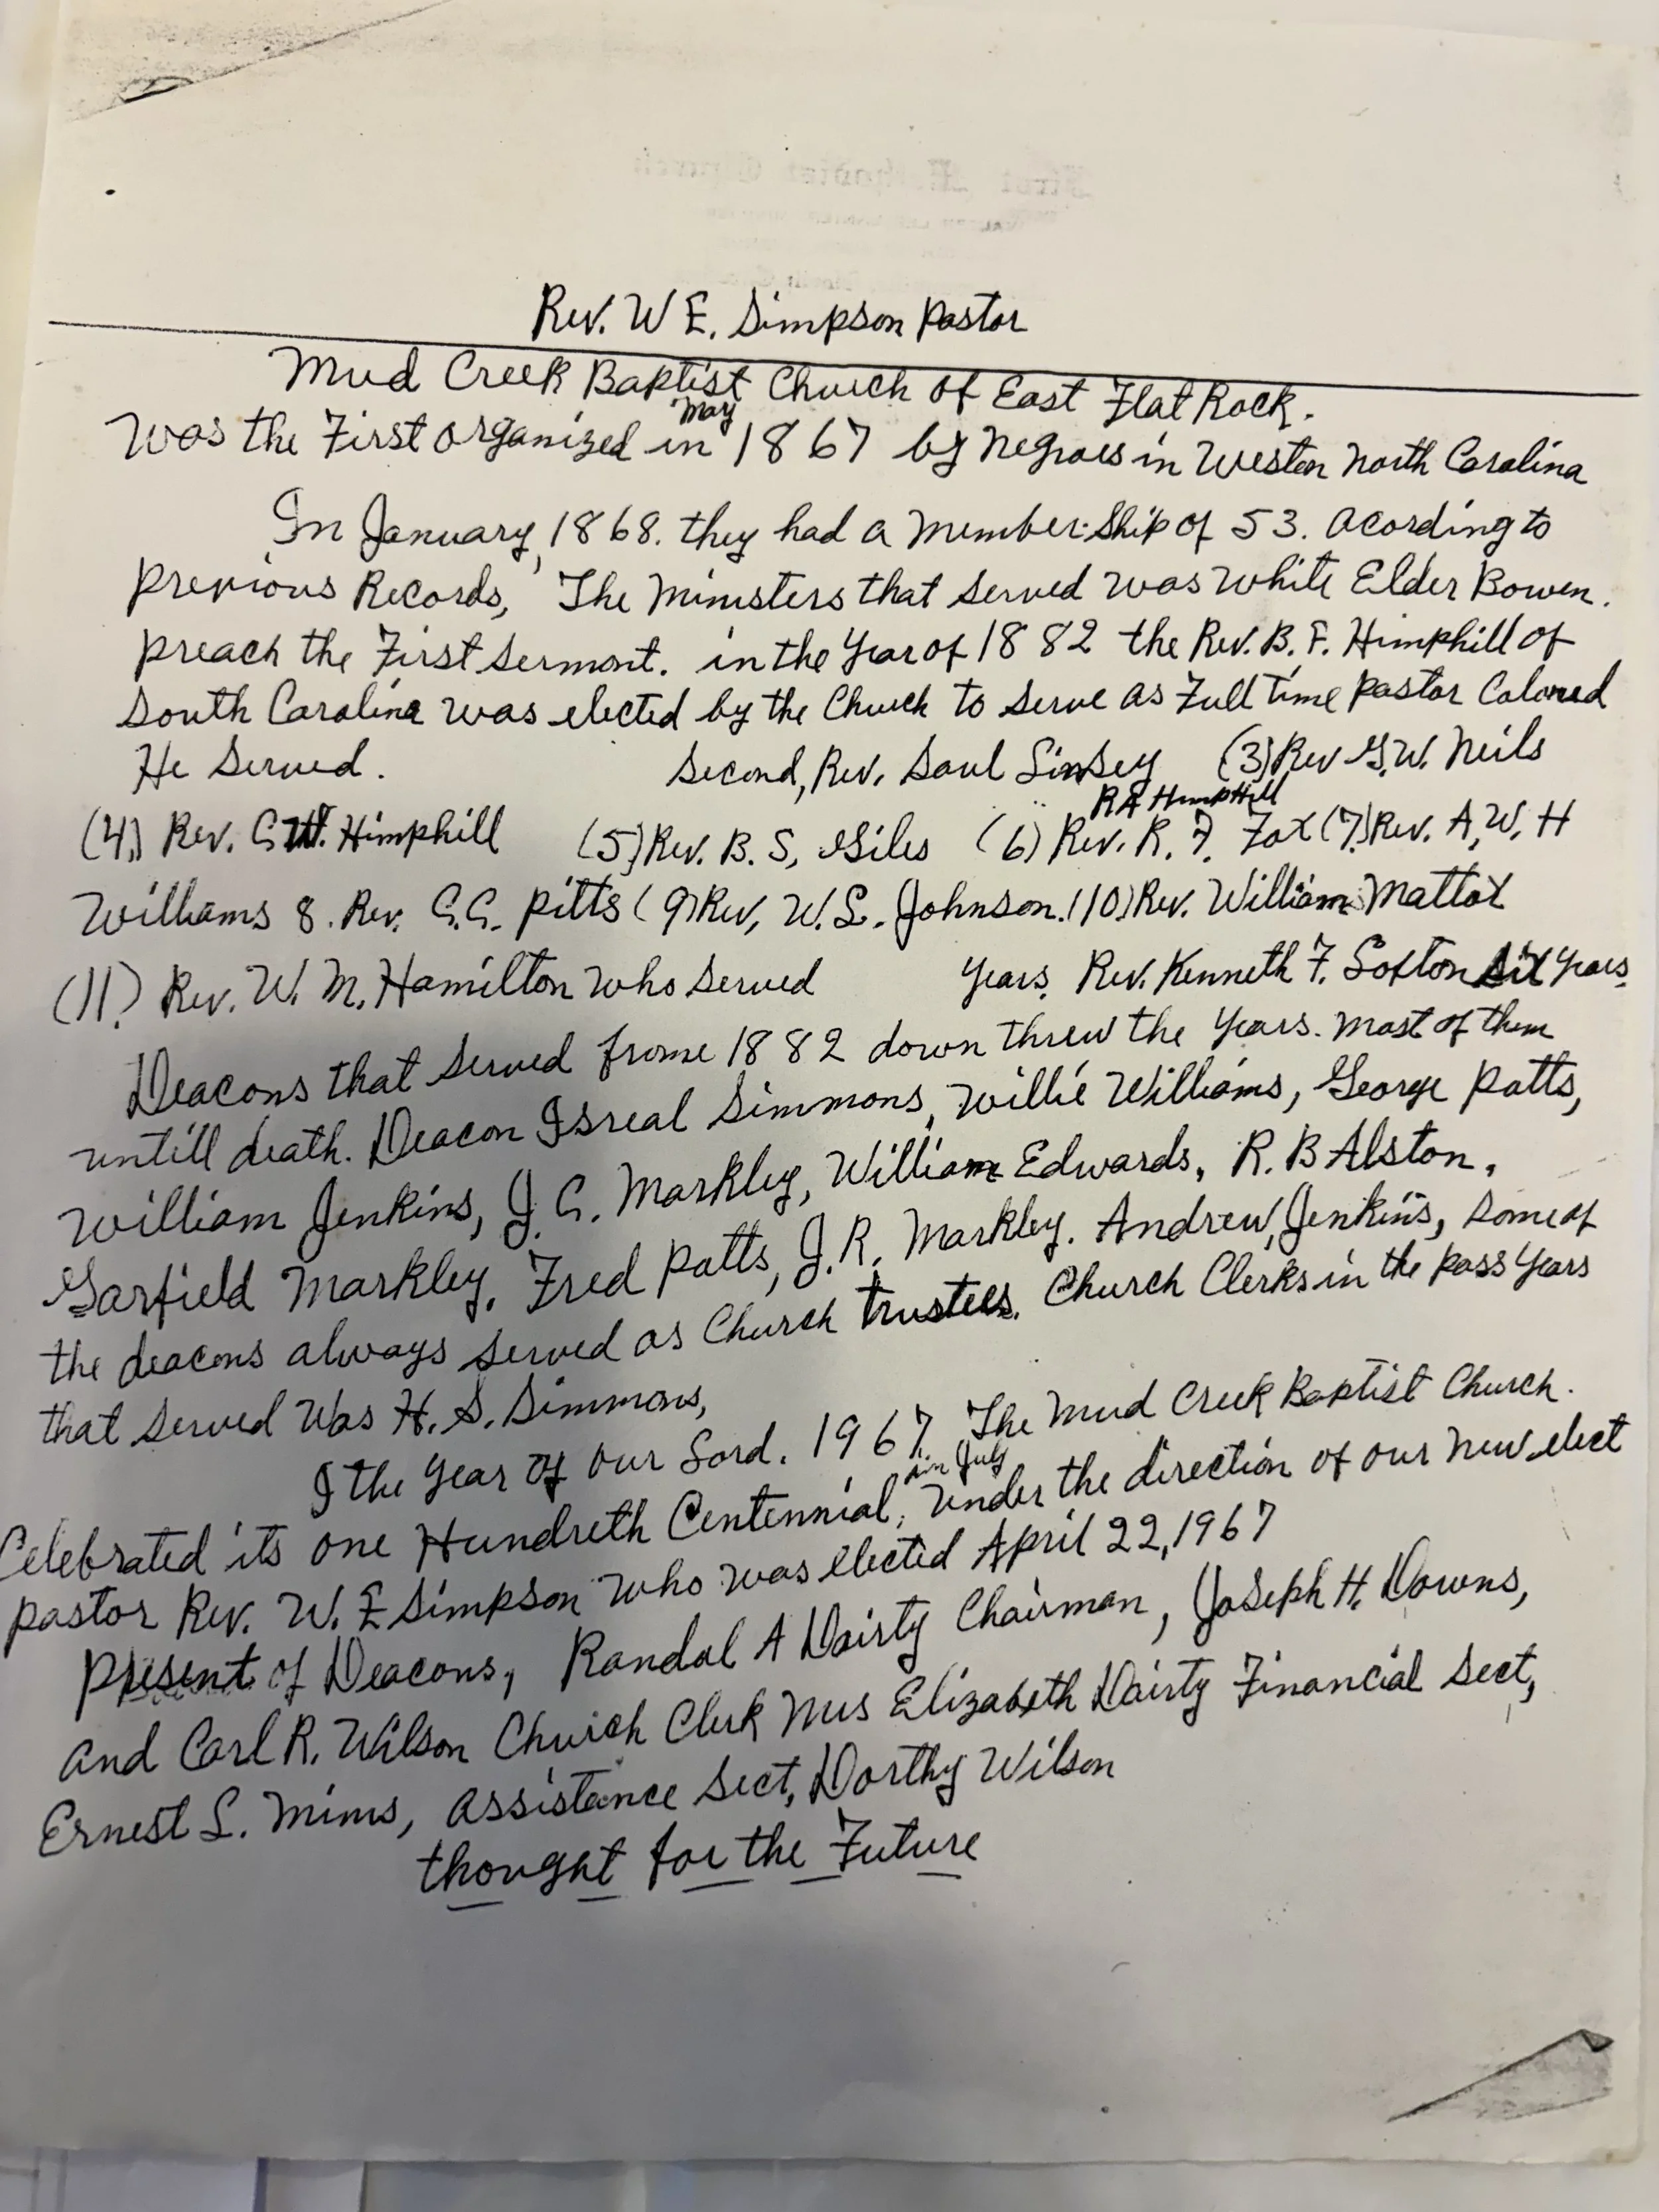 Rev. W E. Simpson Pastor
Mud Creek Baptist Church of East Flat Rock.
May
Was the First organized in 1867 by Negroes in Western North Carolina
In January, 1868. they had a member-ship of 53. acording to
previous Records, The Ministers that served was white Elder Bowen.
preach the First sermont. in the Year of 1882 the Rev. B. F. Himphill of
South Carolina was elected by the Church to serve as Full time pastor Colored
He Served. Second, Rev. Saul Linsey (3) Rev G.W. Neils
RA HimpHill
(4) Rev. C.W. Himphill (5) Rev. B. S, Giles (6) Rev. R. F. Fox (7.) Rev. A, W, H
Williams 8. Rev. C.C. Pitts (9) Rev, W. L. Johnson. (10) Rev. William Mattox
(11.) Rev. W. M. Hamilton who served years, Rev. Kenneth F. Softon six years.
Deacons that served frome 1882 down threw the years. most of them
untill death. Deacon Isreal Simmons, Willie Williams, George Patts,
William Jenkins, J. C. Markley, William Edwards, R. B Alston,
Garfield Markley, Fred Patts, J. R. Markley. Andrew Jenkins, some of
the deacons always served as Church trustees. Church Clerks in the pass years
that served was H. S. Simmons,
I the year of our Lord. 1967. The Mud Creek Baptist Church.
in July
Celebrated its one Hundreth Centennial, under the direction of our new elect
pastor Rev. W. E Simpson who was elected April 22, 1967
present of Deacons, Randal A Dairty Chairman, Joseph H. Downs,
and Carl R. Wilson Church Clerk Mrs Elizabeth Dairty Financial Sect,
Ernest L. Mims, assistance Sect, Dorthy Wilson
thought for the Future